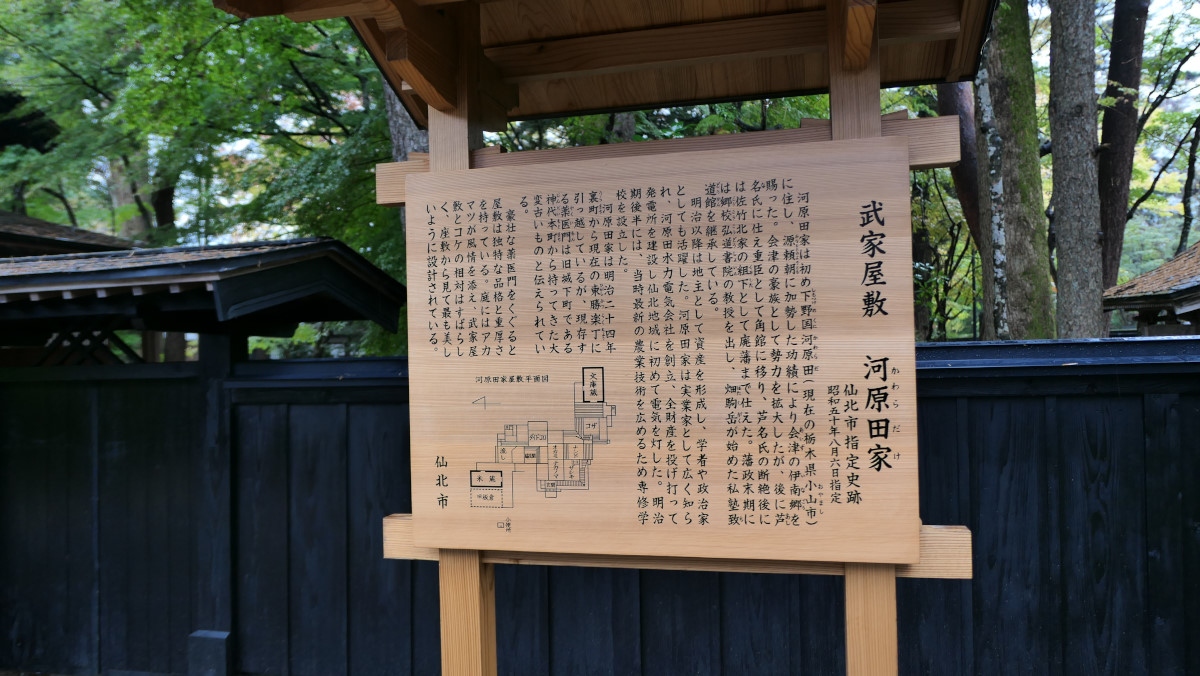 武家屋敷　河原田家
かわらだけ
仙北市指定史跡
昭和五十年八月六日指定
河原田家は初め下野国河原田（現在の栃木県小山市）
に住し、源頼朝に加勢した功績により会津の伊南郷を
賜った。会津の豪族として勢力を拡大したが、後に芦
名氏に仕え重臣として角館に移り、芦名氏の断絶後に
は佐竹北家の組下として廃藩まで仕えた。藩政末期に
は郷校弘道書院の教授を出し、畑駒岳が始めた私塾致
道館を継承している。
明治以降は地主として資産を形成し、学者や政治家
としても活躍した。河原田家は実業家として広く知ら
れ、河原田水力電気会社を創立、全財産を投げ打って
発電所を建設し仙北地域に初めて電気を灯した。明治
期後半には、当時最新の農業技術を広めるため専修学
校を設立した。
河原田家は明治二十四年
裏町から現在の東勝楽丁に
引っ越しているが、現存す
る薬医門は旧城下町である
神代本町から持ってきた大
変古いものと伝えられてい
る。
豪壮な薬医門をくぐると
屋敷は独特な品格と重厚さ
を持っている。庭にはアカ
マツが風情を添え、武家屋
敷とコケの相対はすばらし
く、座敷から見て最も美し
いように設計されている。
河原田家屋敷平面図
文庫蔵
コザ
米蔵
板倉
仙北市